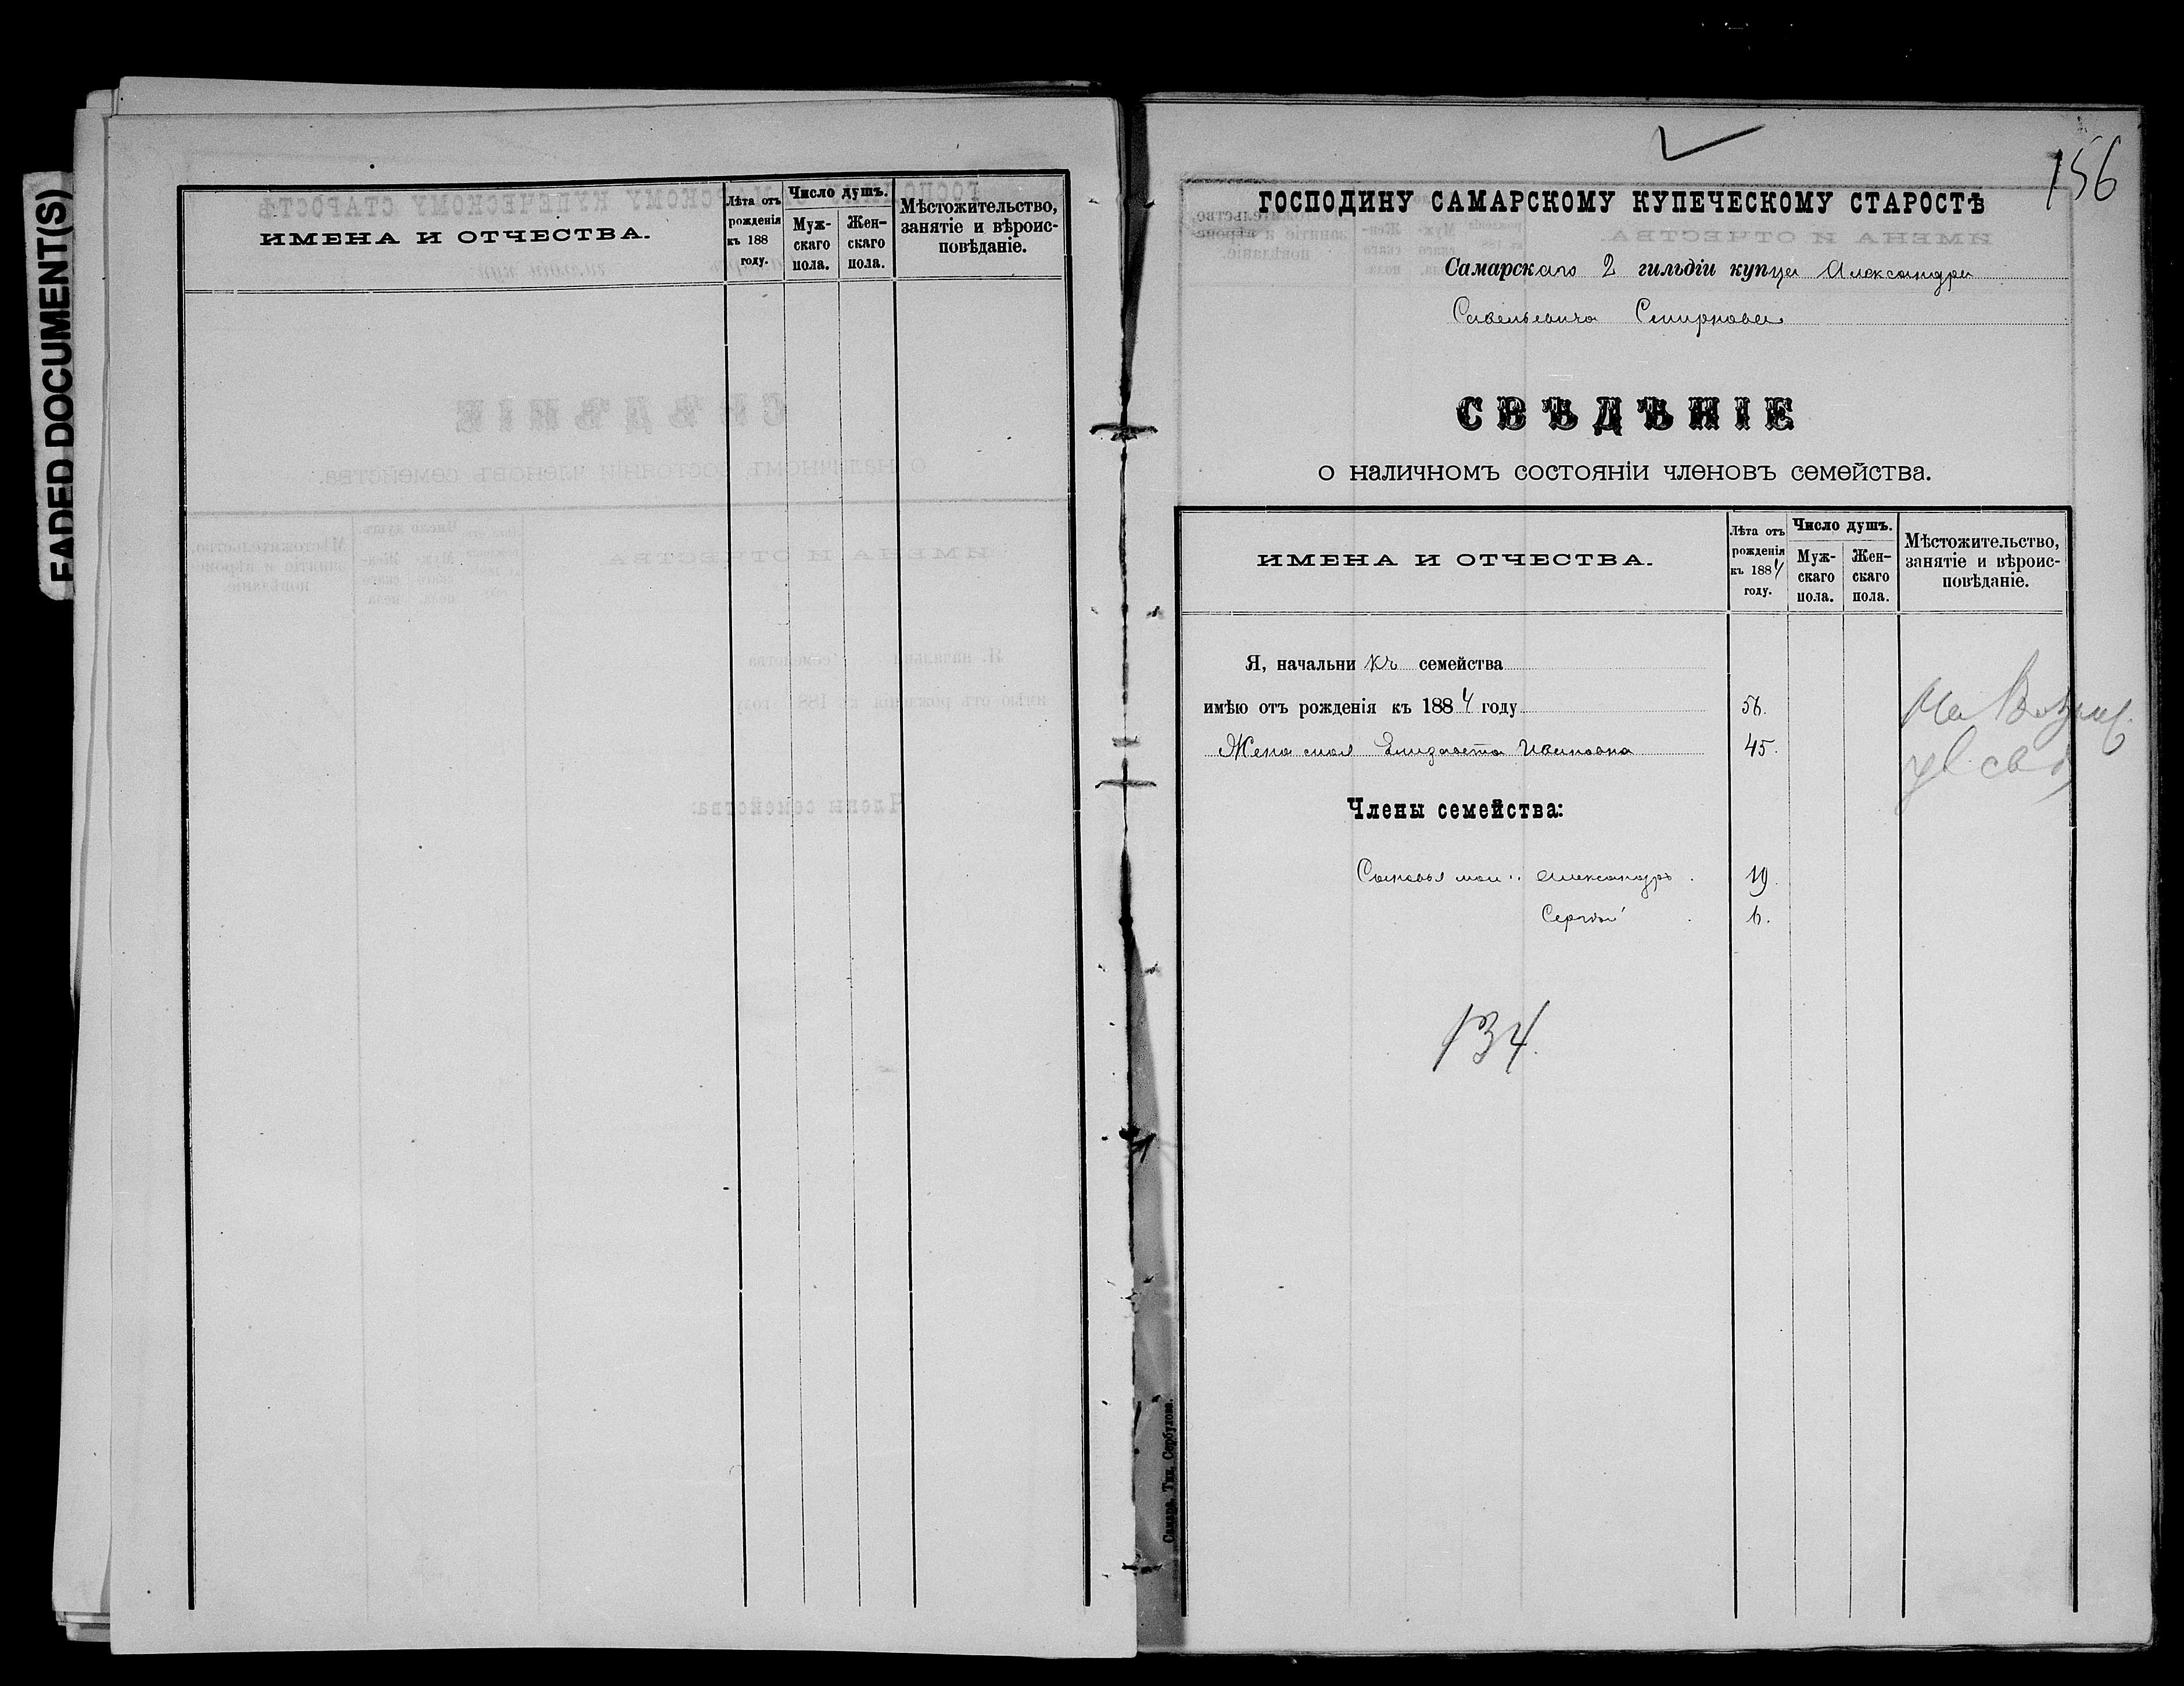 FADED DOCUMENT(S)
ИМЕНА И ОТЧЕСТВА.
Лѣта отъ рожденія къ 188 году.
Число душъ.
Муж-скаго пола.
Жен-скаго пола.
Мѣстожительство, занятіе и вѣроис-повѣданіе.
156
ГОСПОДИНУ САМАРСКОМУ КУПЕЧЕСКОМУ СТАРОСТѢ
Самарскаго 2 гильдіи купца Александра
Савельевича Смирнова
СВѢДѢНІЕ
о наличномъ состояніи членовъ семейства.
ИМЕНА И ОТЧЕСТВА.
Лѣта отъ рожденія къ 1884 году.
Число душъ.
Муж-скаго пола.
Жен-скаго пола.
Мѣстожительство, занятіе и вѣроис-повѣданіе.
Я, начальникъ семейства
имѣю отъ рожденія къ 1884 году 56.
Жена моя Елизавета Ивановна 45.
Члены семейства:
Сыновья мои: Александръ. 19.
Сергѣй. 6.
134.
Самара. Тип. Сербулова.